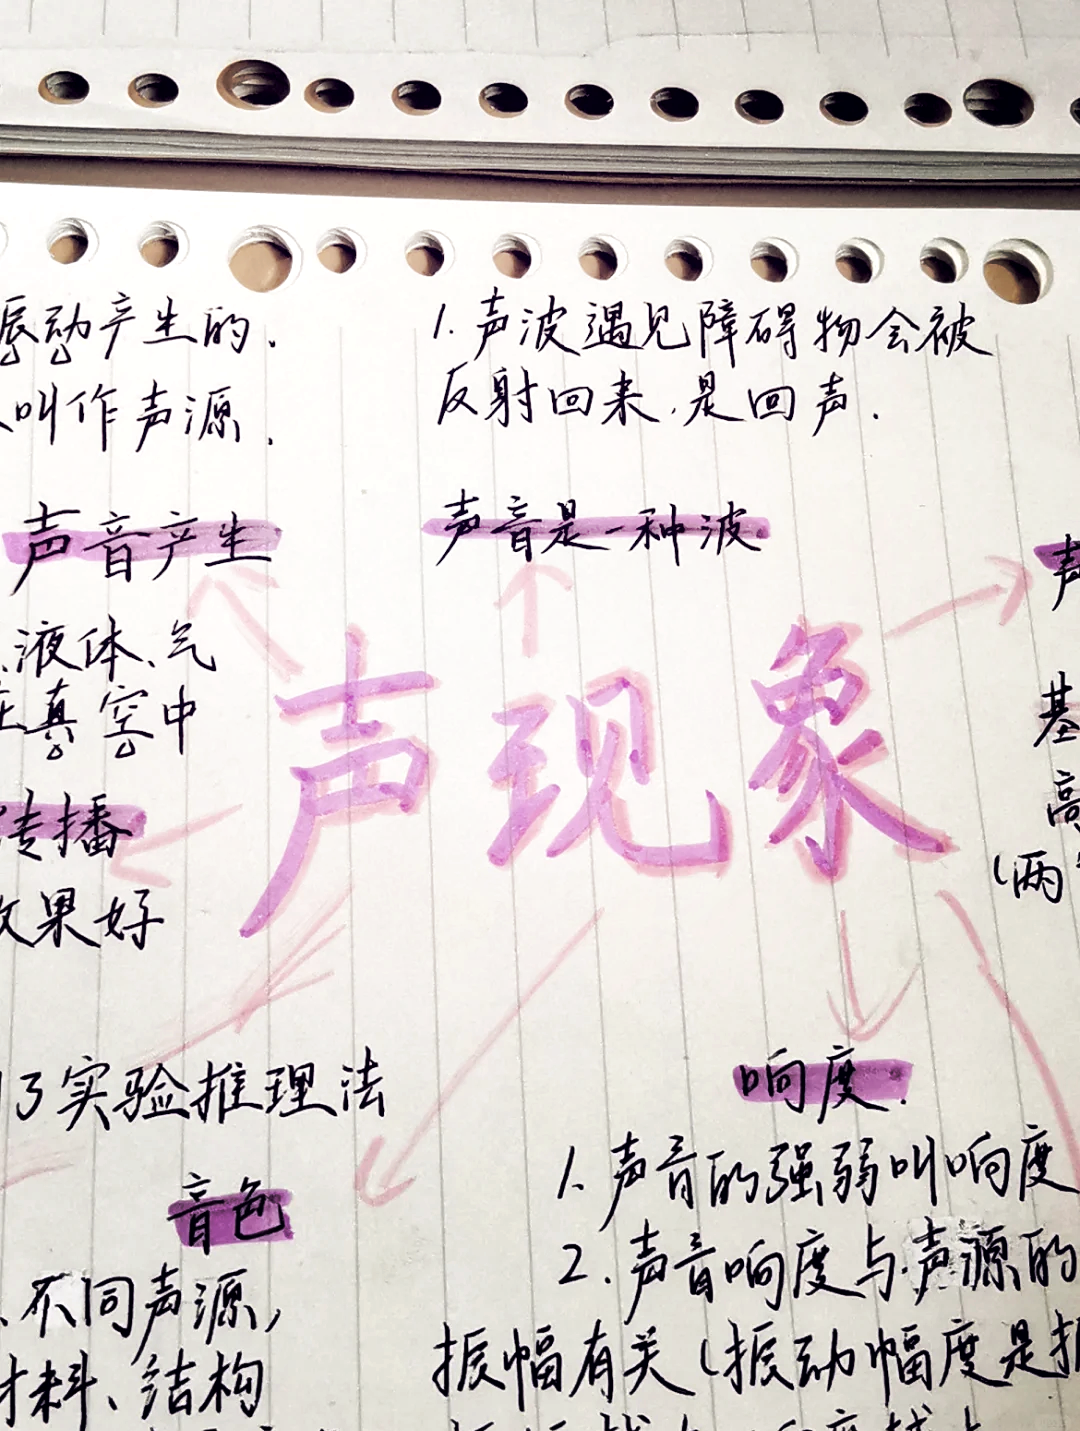 振动产生的.
叫作声源.
1. 声波遇见障碍物会被
反射回来,是回声.
声音产生
声音是一种波
液体、气
真空中
传播
效果好
声现象
基
高
(两
了实验推理法
响度.
1. 声音的强弱叫响度
2. 声音响度与声源的
振幅有关(振动幅度是
音色
不同声源,
材料、结构